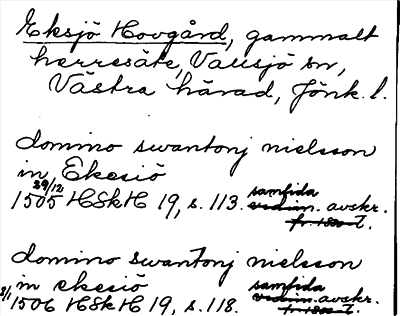 Eksjö Hovgård, gammalt
herresäte, Vallsjö sn,
Västra härad, Jönk. l.
domino swantonj nielsson
in Ekesiö
29/12 samfida
1505 HSkH 19, s. 113. vidim. avskr.
fr. 1800-t.
domino swantonj nielsson
in ekesiö samfida
3/1 1506 HSkH 19, s. 118. vidim. avskr.
fr. 1800-t.